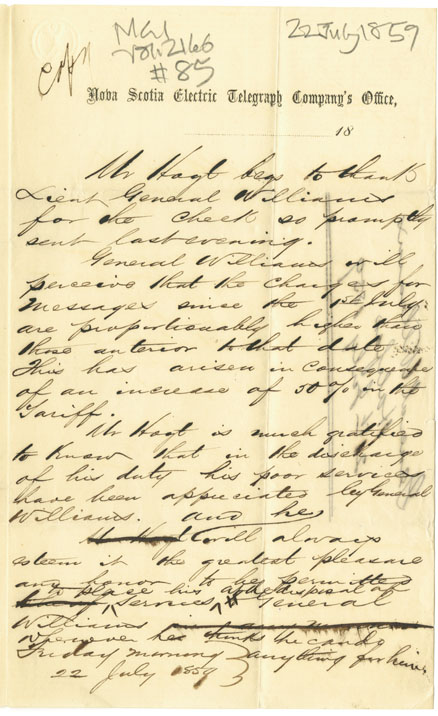 MG1
Vol. 2166
#85
22 July 1859
Copy
Nova Scotia Electric Telegraph Company's Office,
18
Mr Hoyt begs to thank
Lieut General Williams
for the check so promptly
sent last evening.
General Williams will
perceive that the charges for
messages since the 1st July
are proportionably higher than
those anterior to that date
This has arisen in consequence
of an increase of 50% in the
Tariff.
Mr Hoyt is much gratified
to know that in the discharge
of his duty his poor services
have been appreciated by General
Williams. and he
will always
esteem it the greatest pleasure
and honor to be permitted
to place his at the disposal of
services General
Williams
whenever he thinks he can do
Friday morning anything for him
22 July 1859